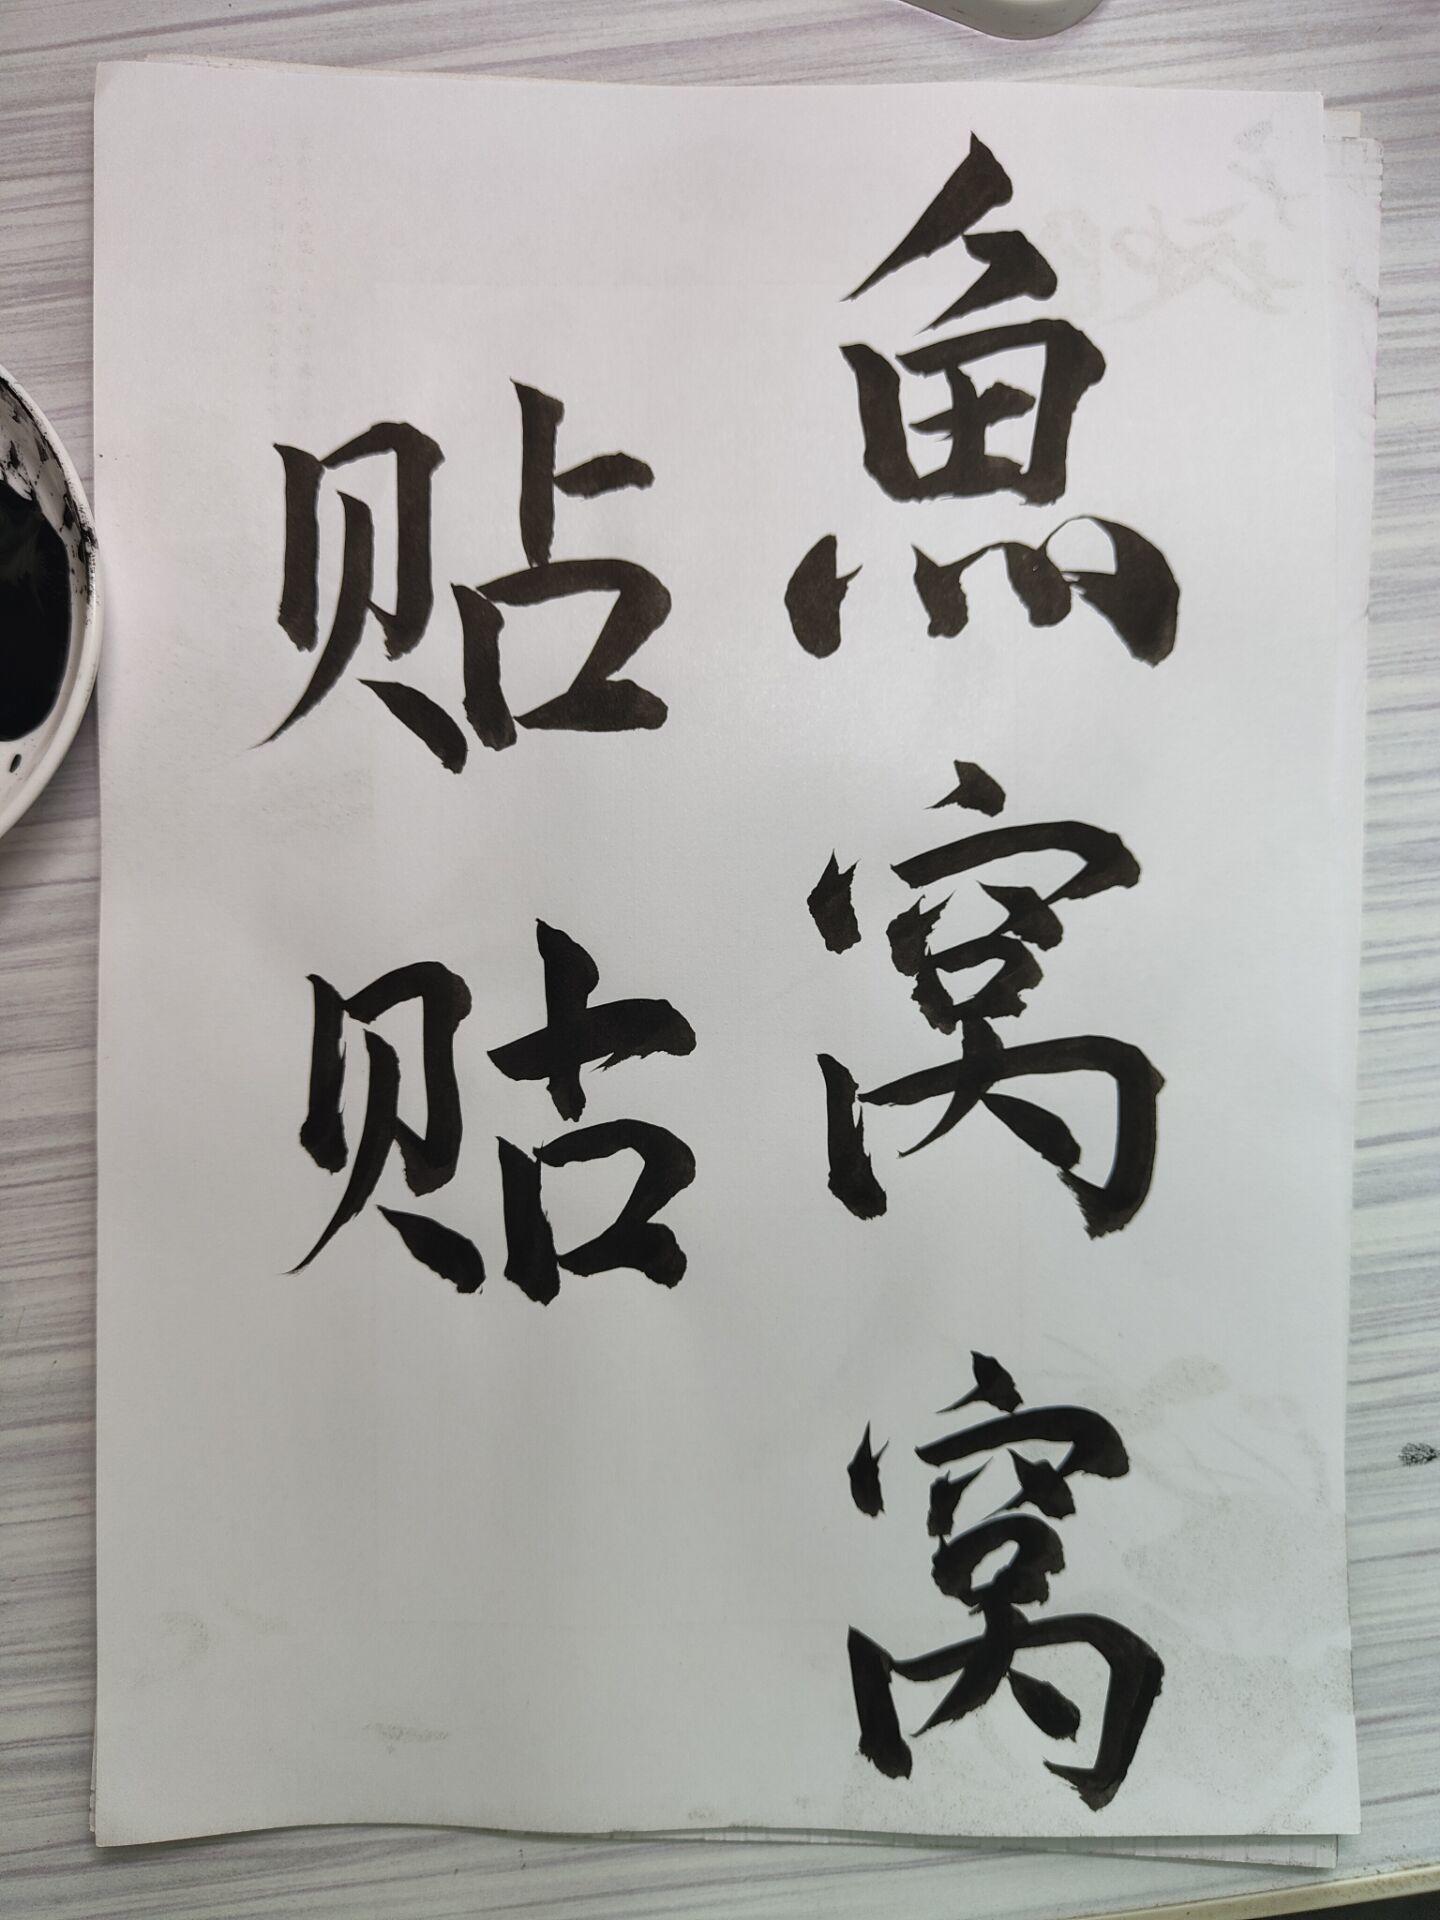 魚窝窝
贴贴